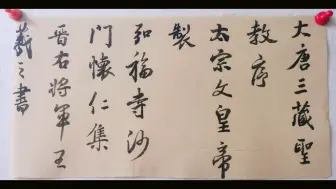 大唐三藏聖
教序
太宗文皇帝
製
弘福寺沙
門懷仁集
晉右將軍王
羲之書